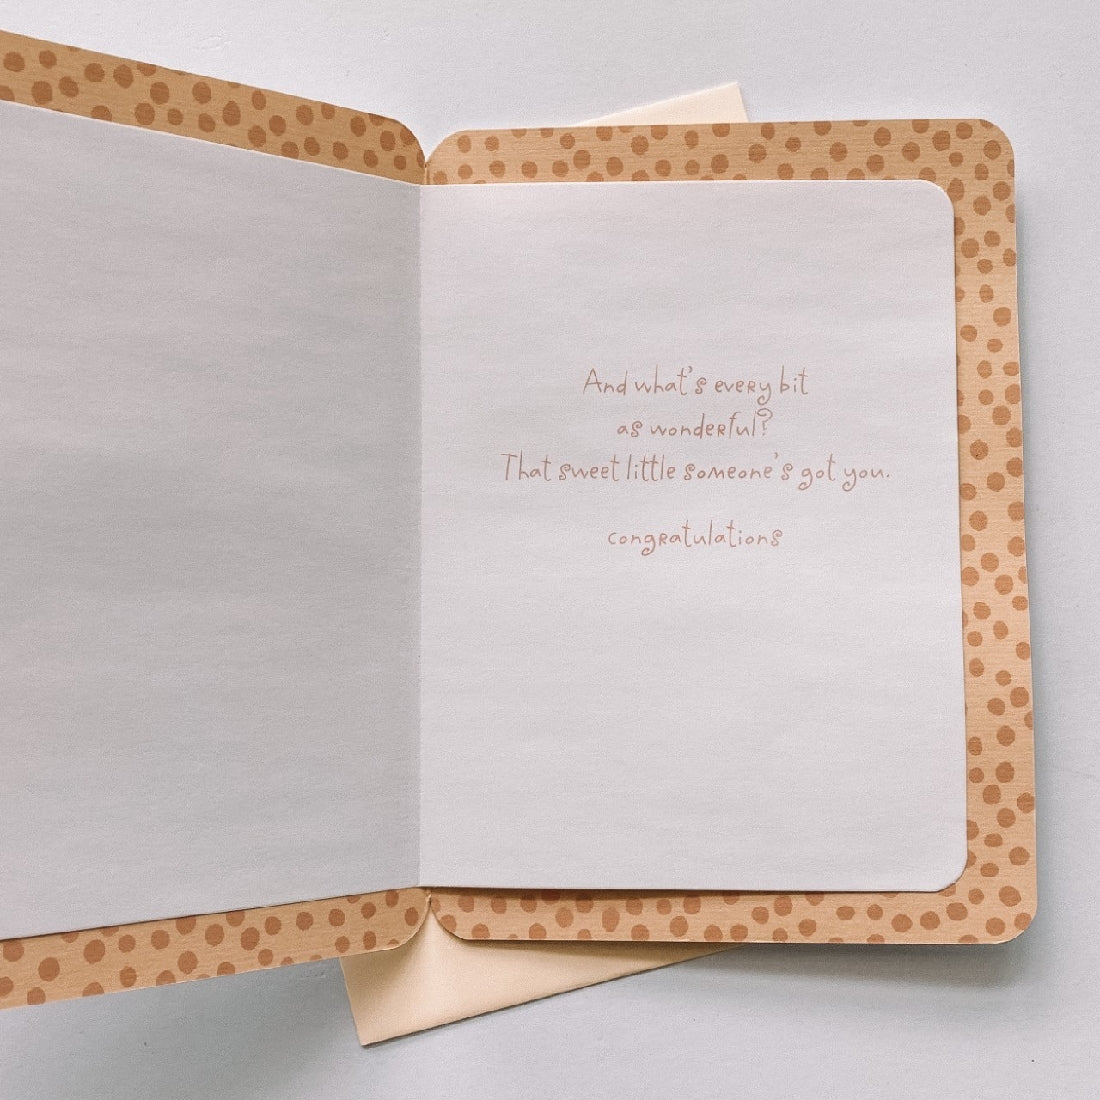 And what's every bit
as wonderful?
That sweet little someone's got you.
congratulations